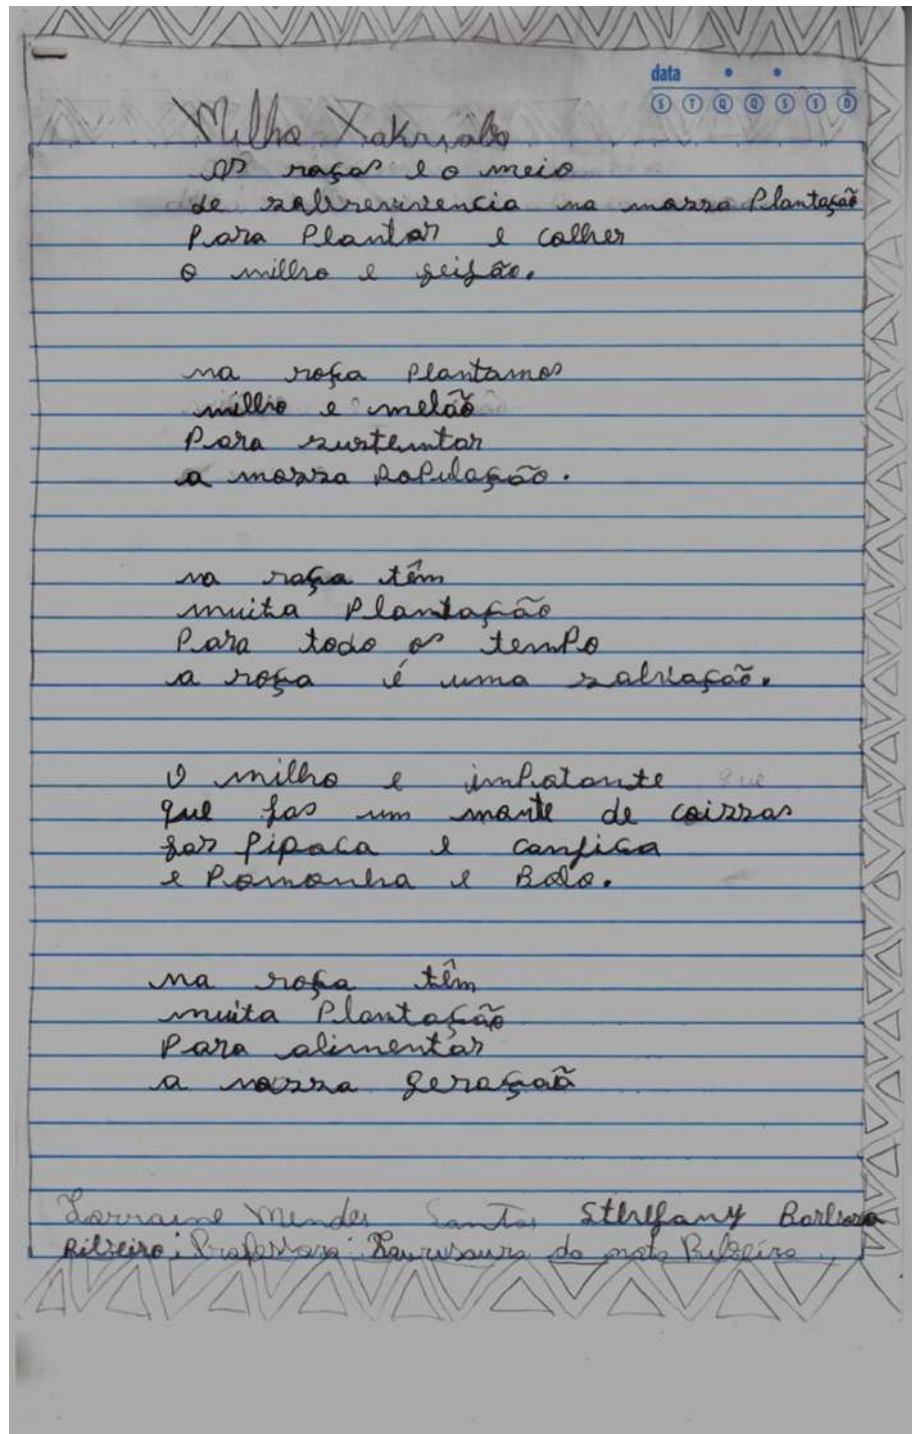 data
S T Q Q S S D
Milho Xakriabá
As roças e o meio
de sobrevivencia na nossa Plantação
Para Plantar e colher
o milho e feijão.
na roça Plantamos
milho e melão
Para sustentar
a nossa PoPulação.
na roça têm
muita Plantação
Para todo os temPo
a roça é uma salvação.
O milho e imPotante
que fas um monte de coissas
faz PiPoca e canjica
e Pamonha e Bolo.
na roça têm
muita Plantação
Para alimentar
a nossa geração
Lorraine Mendes Santos Stherfany Barbosa
Ribeiro; Professora: da mata Ribeiro